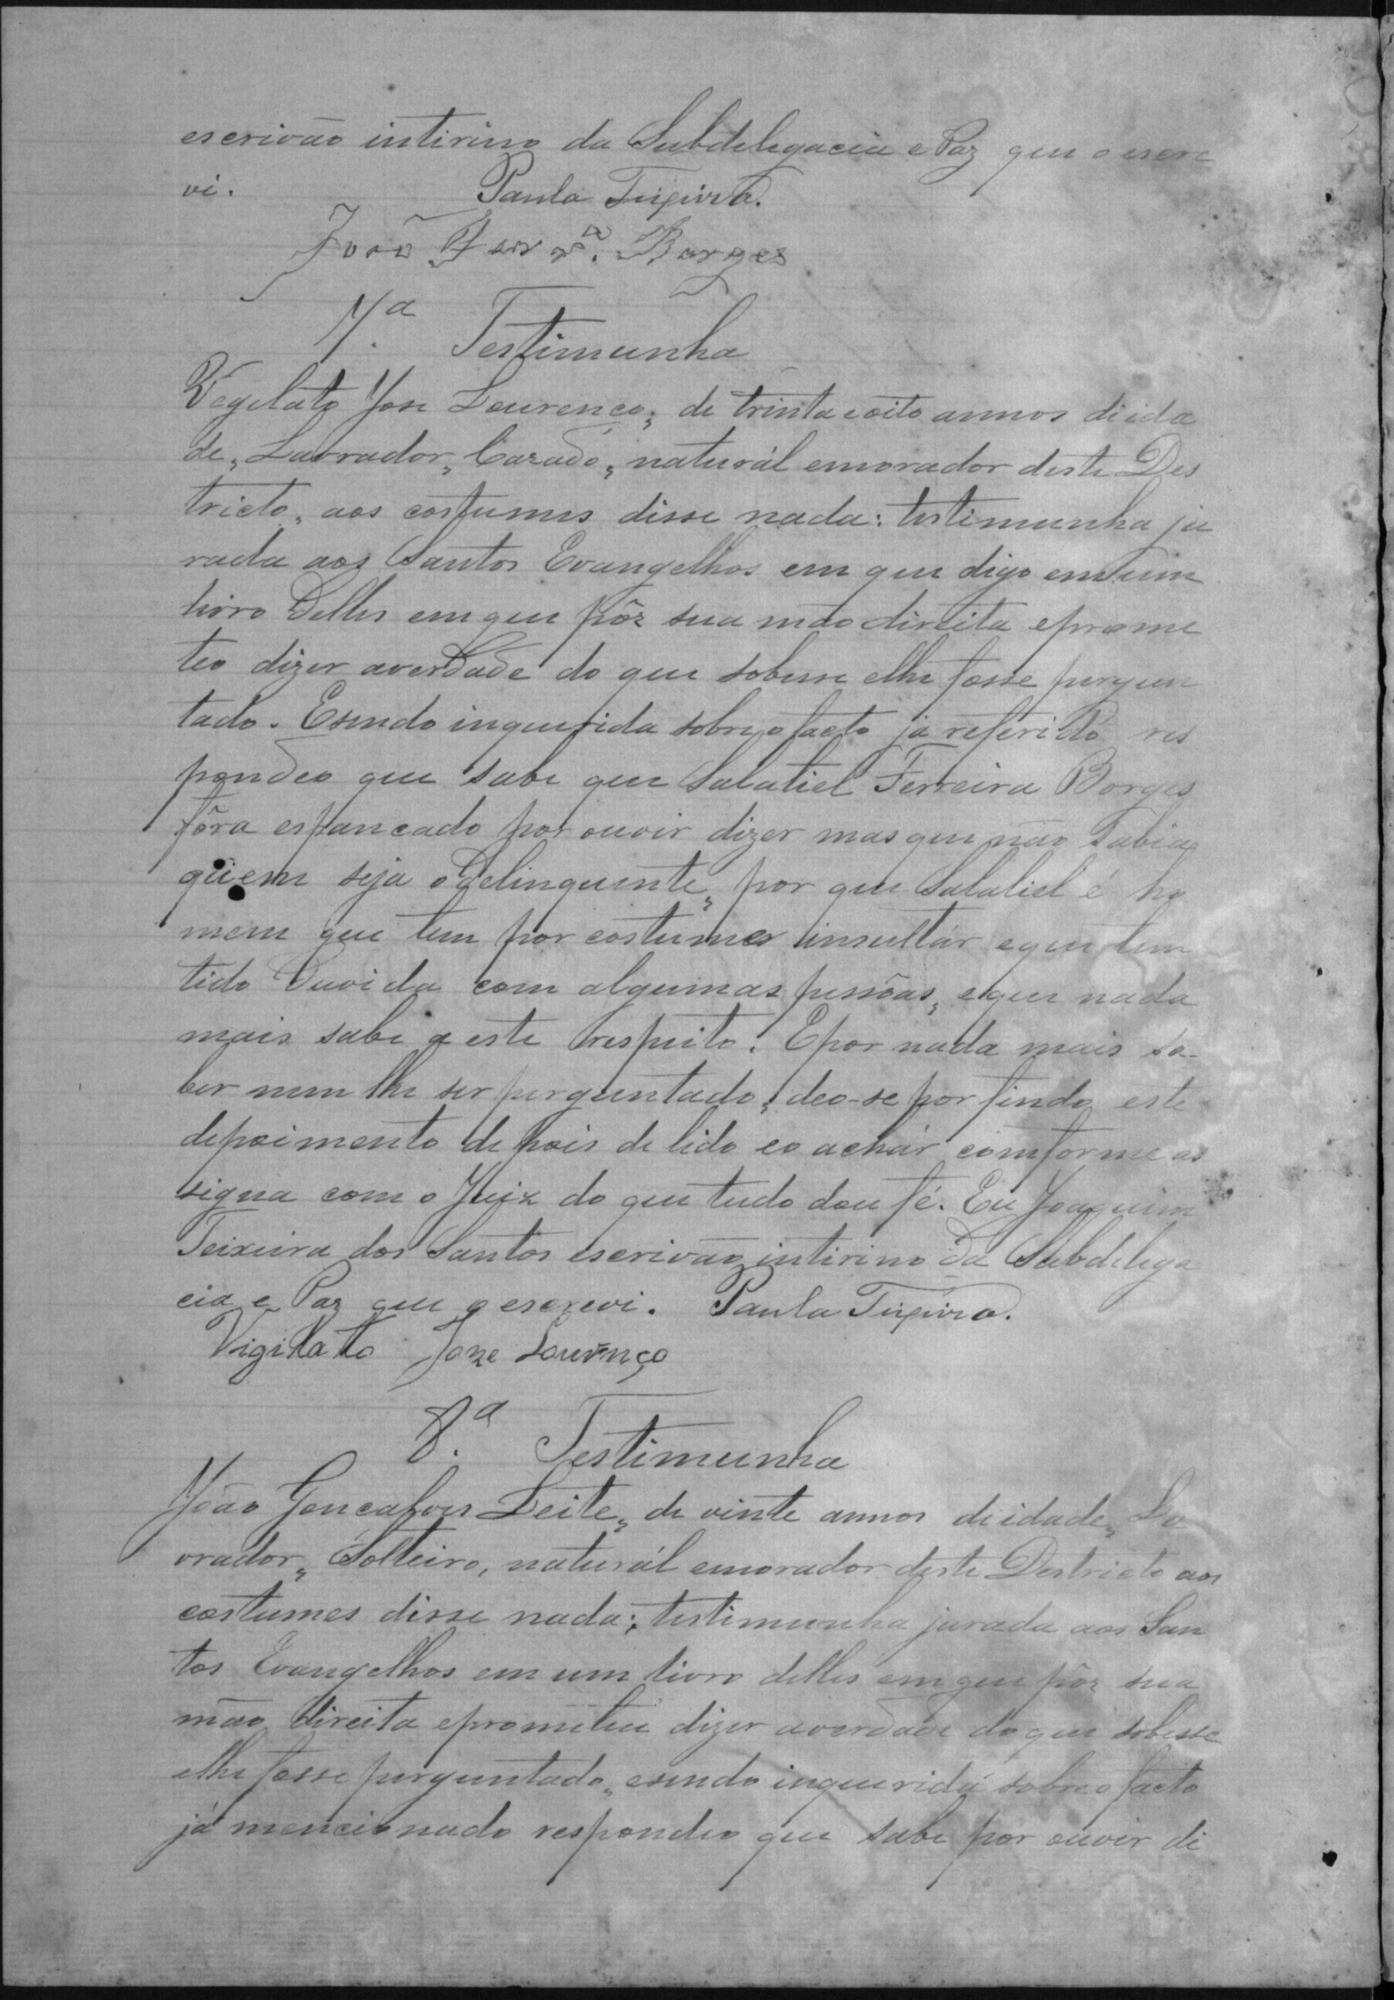 escrivão intirino da Subdelegacia e Paz que o escre
vi. Paula Teixeira.
João Ferrª. Borges
7.ª Testimunha
Vegilato Jose Lourenço, de trinta e oito annos di ida
de, Lavrador, Cazado, naturál emorador deste Des
tricto, aos costumes disse nada: testimunha ju
rada aos Santos Evangelhos em que digo em um
livro Delles em que pôz sua mão direita eprome
teo dizer averdade do que sobesse elhe fosse pergun
tado. Esendo inquerida sobre o facto já referido res
pondeo que sabe que Salatiel Ferreira Borges
fôra espancado por ouvir dizer mas que não sabia
quem seja o delinquente, por que Salatiel é ho
mem que tem por costumes insultár e que tem
tido Duvida com algumas pessôas, e que nada
mais sabe a este respeito. Epor nada mais sa-
ber nem lhe ser perguntado, deo-se por findo este
depoimento depois de lido eo achár comforme as
signa com o Juiz do que tudo dou fé. Eu Joaquim
Teixeira dos Santos escrivão intirino da Subdelega
cia e Paz que o escrevi. Paula Teixeira.
Vigilato Joze Lourenço
8.ª Testimunha
João Goncalves Leite, de vinte annos di idade, La
vrador, Solteiro, naturál emorador deste Destricto aos
costumes disse nada; testimunha jurada aos San
tos Evangelhos em um livro delles em que pôz sua
mão direita eprometeu dizer averdade do que sobesse
elhe fosse perguntado, esendo inquerida sobre o facto
já mencionado respondeo que sabe por ouvir di